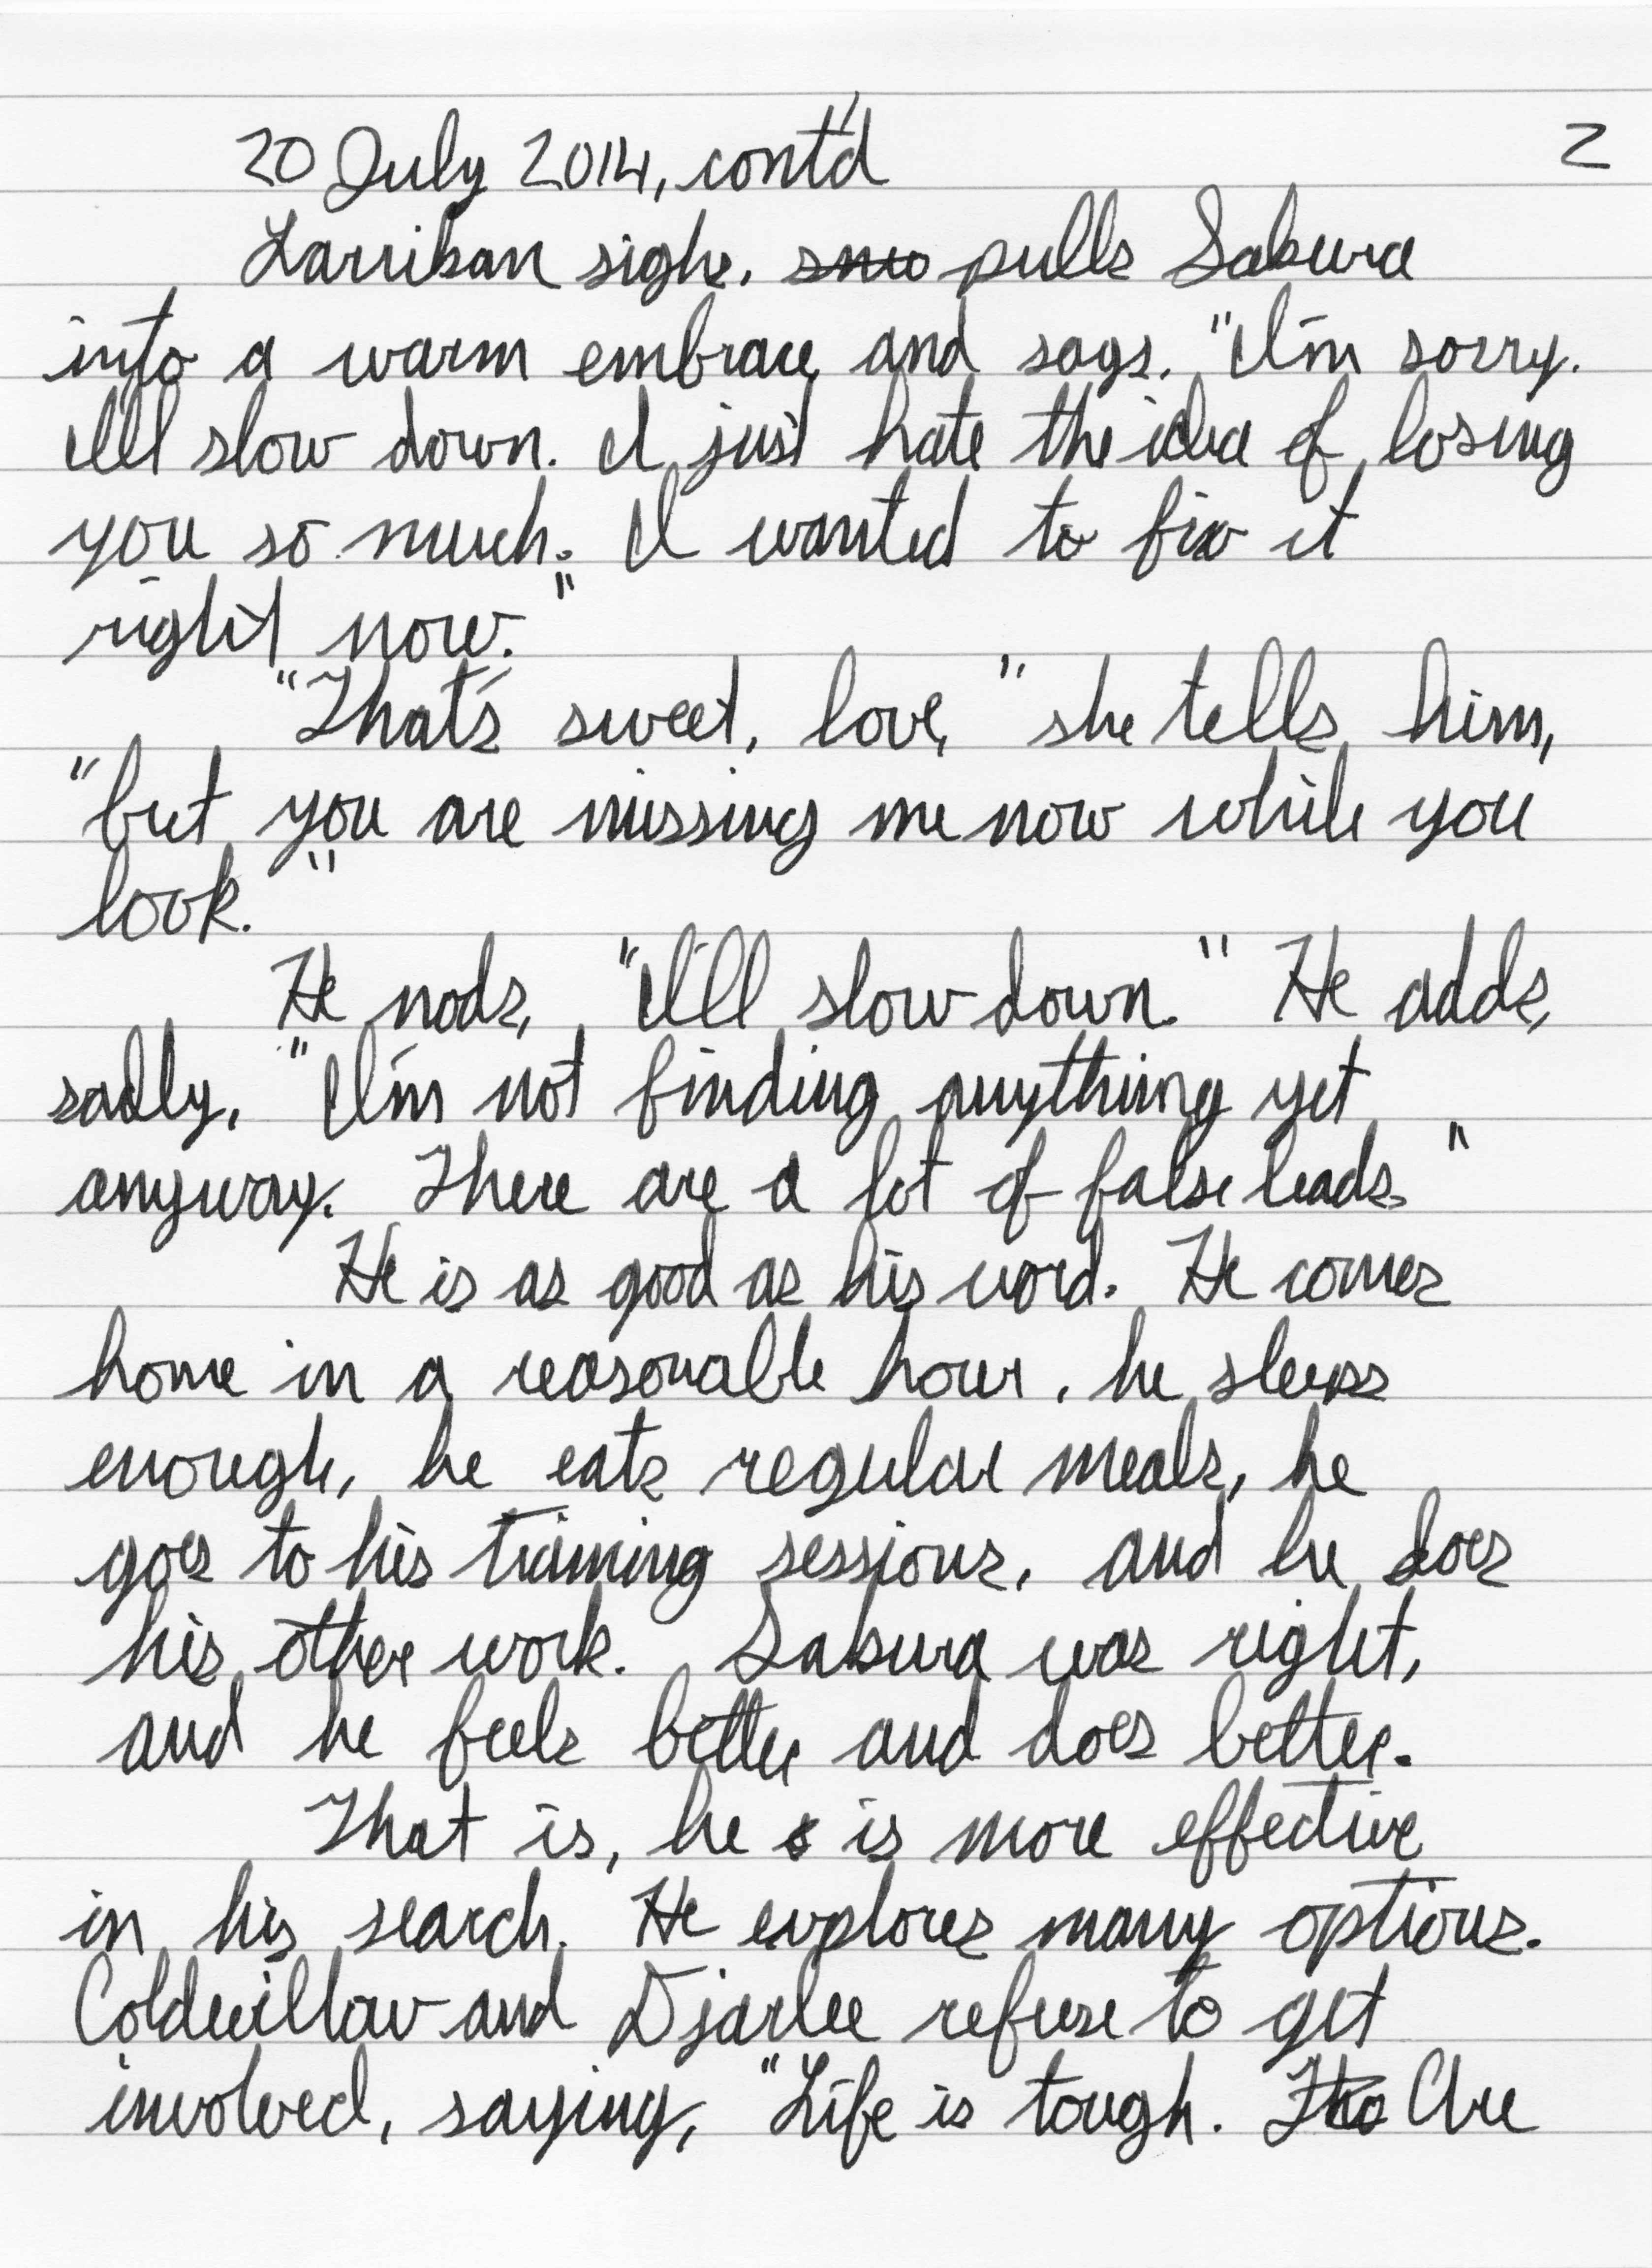 20 July 2014, cont'd 2
Larrikan sighs, snu pulls Sakura
into a warm embrace and says, "I'm sorry.
I'll slow down. I just hate the idea of losing
you so much. I wanted to fix it
right now."
"That's sweet, love," she tells him,
"but you are missing me now while you
look."
He nods, "I'll slow down." He adds,
sadly, "I'm not finding anything yet
anyway. There are a lot of false leads."
He is as good as his word. He comes
home in a reasonable hour, he sleeps
enough, he eats regular meals, he
goes to his training sessions, and he does
his other work. Sakura was right,
and he feels better and does better.
That is, he s is more effective
in his search. He explores many options.
Coldwillow and Djarlee refuse to get
involved, saying, "Life is tough. Are